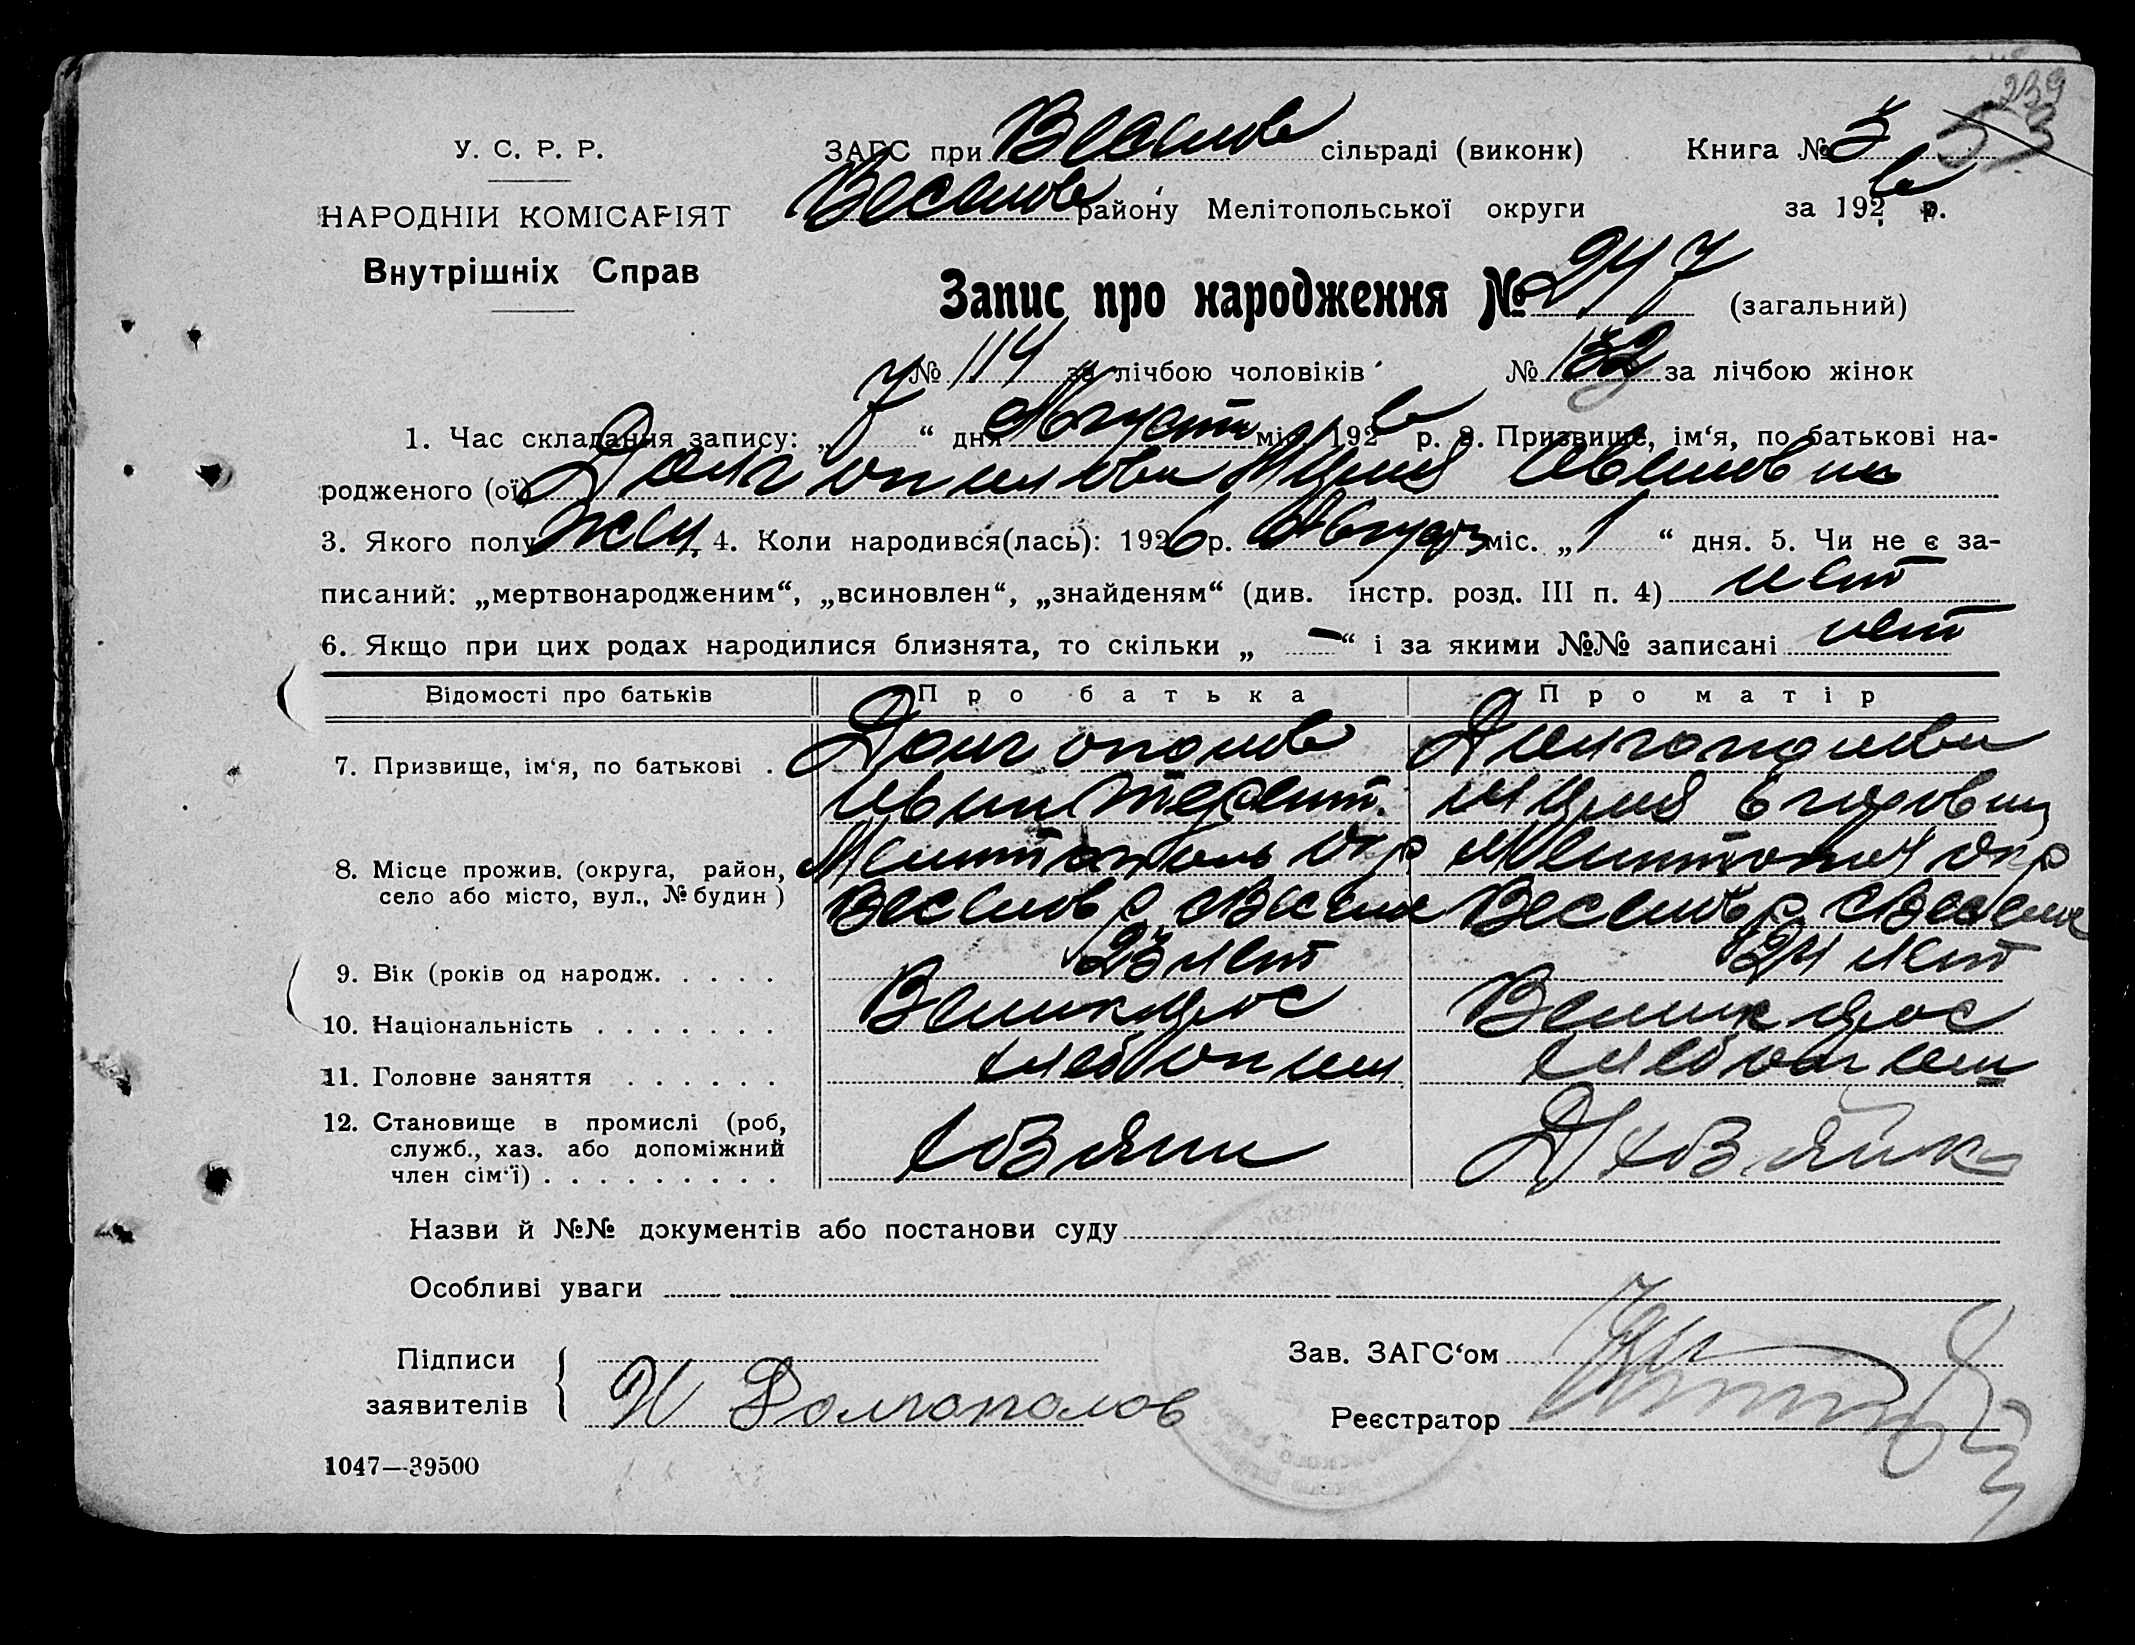 239
53
У. С. Р. Р.
НАРОДНІЙ КОМІСАРІЯТ
Внутрішніх Справ
ЗАГС при Веселов сільраді (виконк) Книга № 3
Веселов району Мелітопольської округи за 1926 р.
Запис про народження № 247 (загальний)
№ 114 за лічбою чоловіків № 132 за лічбою жінок
1. Час складання запису: „7“ дня Август міс. 1926 р. 2. Призвище, ім‘я, по батькові на-
родженого (ої) Долгополова Мария Ивановна
3. Якого полу жен. 4. Коли народився(лась): 1926 р. Август міс. „1“ дня. 5. Чи не є за-
писаний: „мертвонародженим“, „всиновлен“, „знайденям“ (див. інстр. розд. III п. 4) нет
6. Якщо при цих родах народилися близнята, то скільки „—“ і за якими №№ записані нет
Відомості про батьків Про батька Про матір
7. Призвище, ім‘я, по батькові . Долгополов Долгополова
Иван Терент. Мария
8. Місце прожив. (округа, район, Мелитополь окр Мелитополь окр
село або місто, вул., № будин) Веселов р. с Веселое Веселов р. с Веселое
9. Вік (років од народж. . . . . 23 лет 24 лет
10. Національність . . . . . . . Великорос Великорос
11. Головне заняття . . . . . . хлебопаш хлебопаш
12. Становище в промислі (роб,
служб., хаз. або допоміжний Хозяин Хозяйк
член сім‘ї) . . . . . . . . .
Назви й №№ документів або постанови суду
Особливі уваги
Підписи
заявителів И Долгополов
Зав. ЗАГС‘ом
Реєстратор
1047—39500